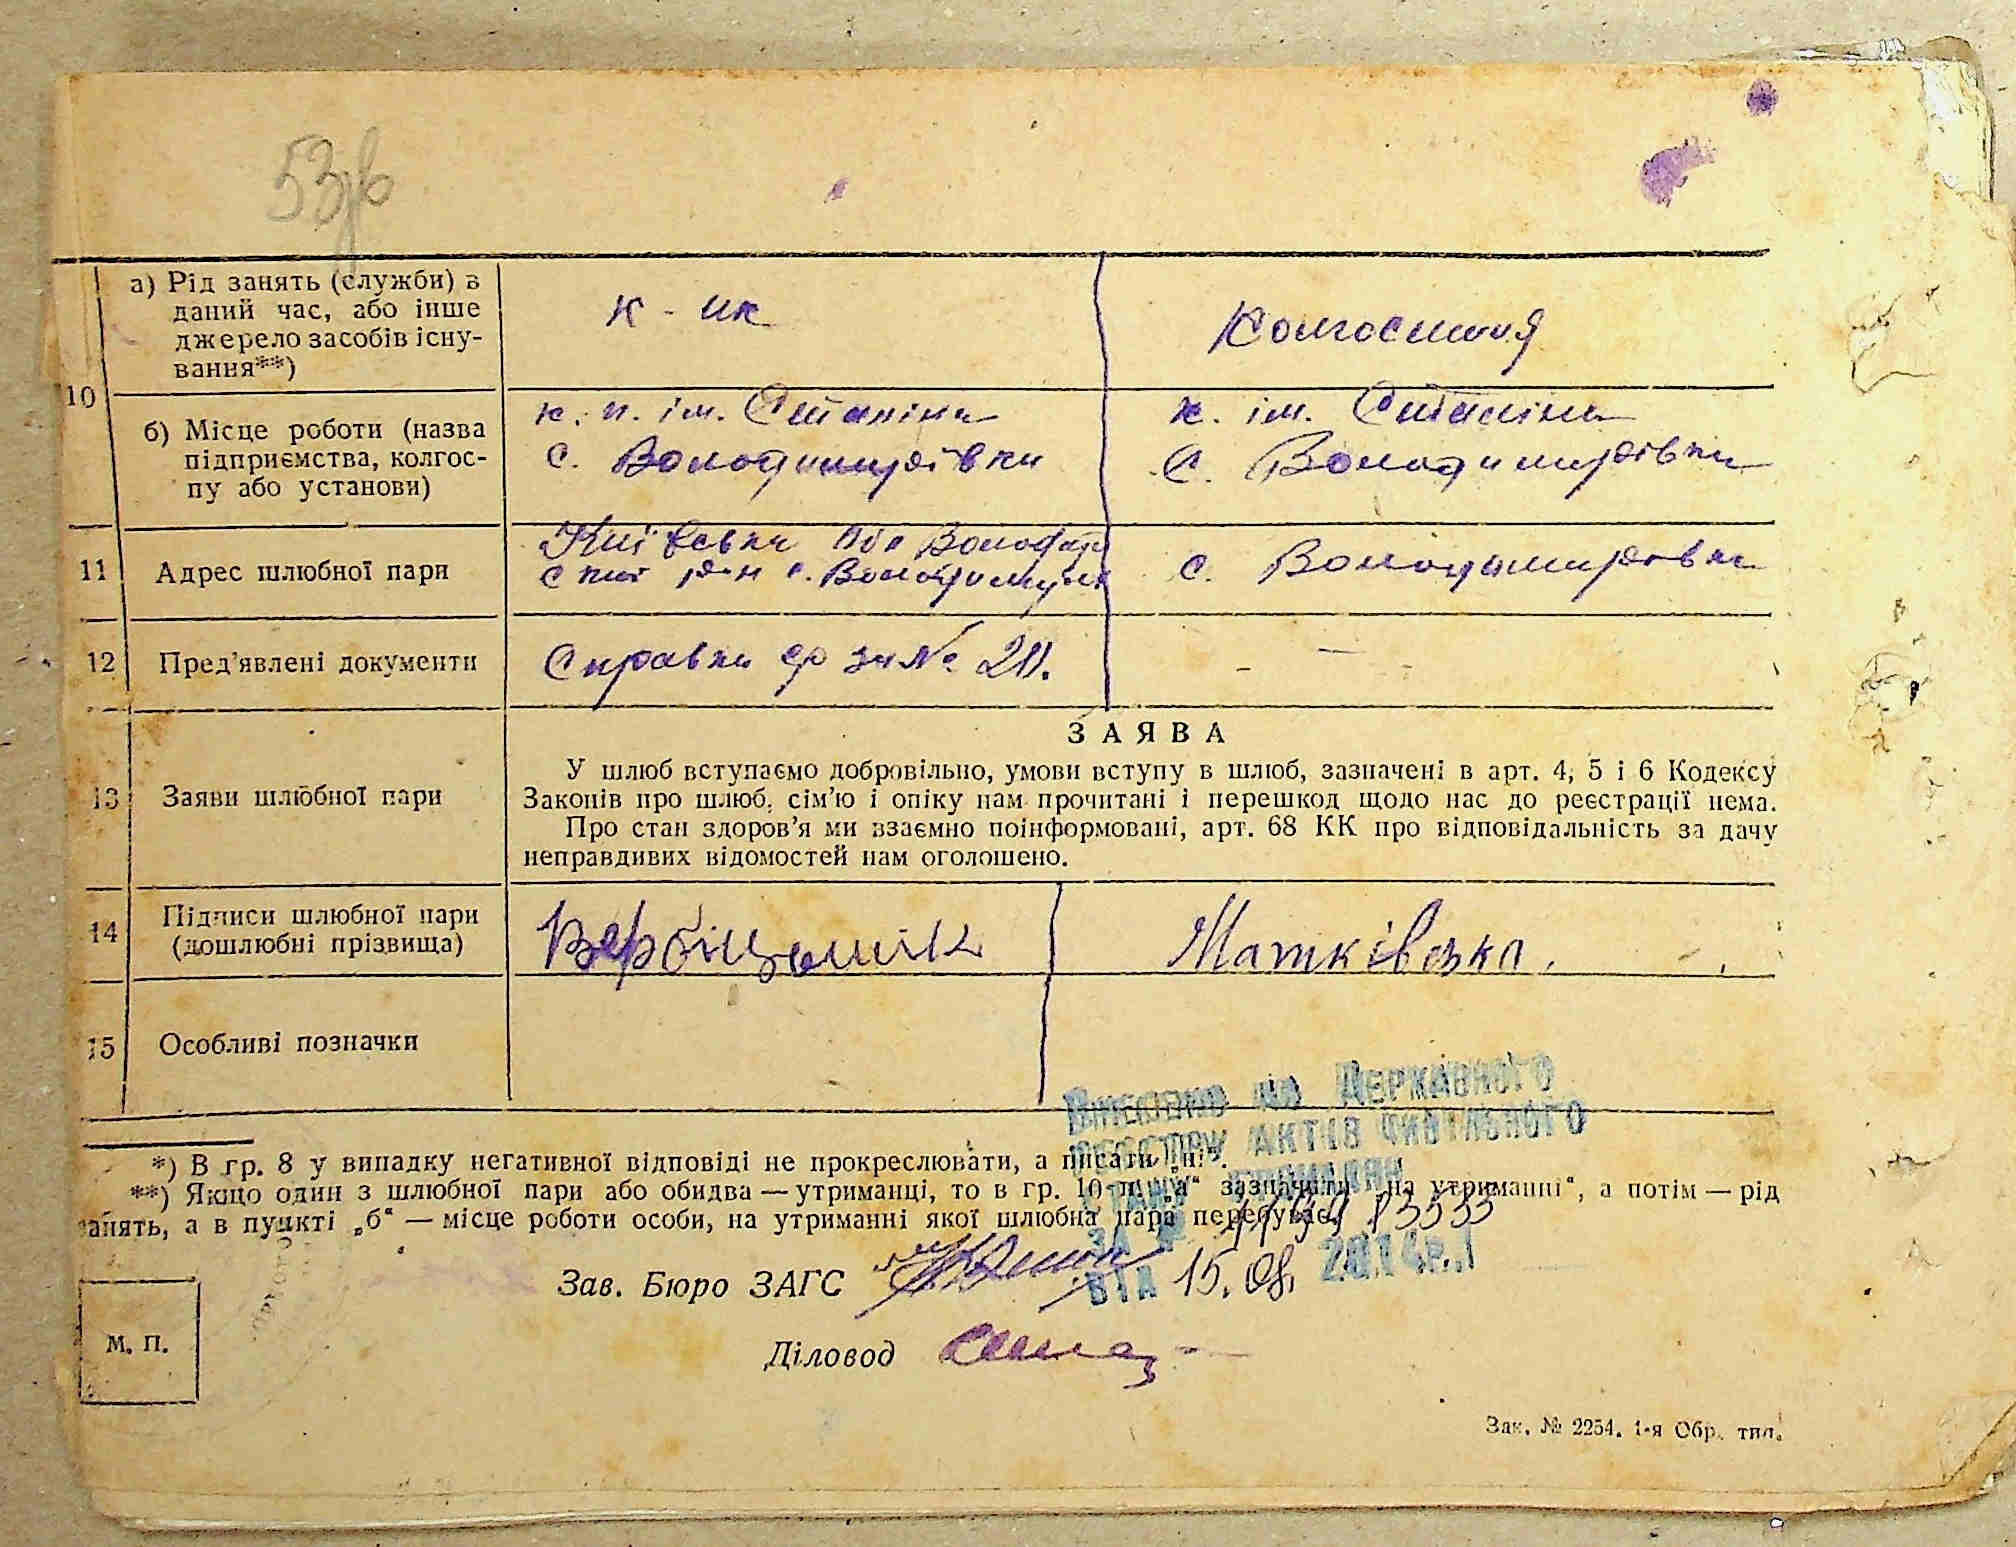 53
а) Рід занять (служби) в
даний час, або інше
джерело засобів існу-
вання**)
к - ик
Колгоспниця
10
б) Місце роботи (назва
підприємства, колгос-
пу або установи)
к. п. ім. Сталіна
с. Володимирівки
к. ім. Сталіна
с. Володимирівки
11
Адрес шлюбної пари
Київська Обл Володар
ский р-н с. Володимирів
с. Володимирівка
12
Пред'явлені документи
Справка за № 211.
13
Заяви шлюбної пари
ЗАЯВА
У шлюб вступаємо добровільно, умови вступу в шлюб, зазначені в арт. 4, 5 і 6 Кодексу
Законів про шлюб, сім'ю і опіку нам прочитані і перешкод щодо нас до реєстрації нема.
Про стан здоров'я ми взаємно поінформовані, арт. 68 КК про відповідальність за дачу
неправдивих відомостей нам оголошено.
14
Підписи шлюбної пари
(дошлюбні прізвища)
Матківська.
15
Особливі позначки
Внесено до Державного
реєстру актів цивільного
стану громадян
за №
від 15.08. 2014р.
*) В гр. 8 у випадку негативної відповіді не прокреслювати, а писати „ні“.
**) Якщо один з шлюбної пари або обидва — утриманці, то в гр. 10 п. „а“ зазначити „на утриманні“, а потім — рід
занять, а в пункті „б“ — місце роботи особи, на утриманні якої шлюбна пара перебуває.
Зав. Бюро ЗАГС
Діловод
М. П.
Зак. № 2254. 1-я Обр. тип.